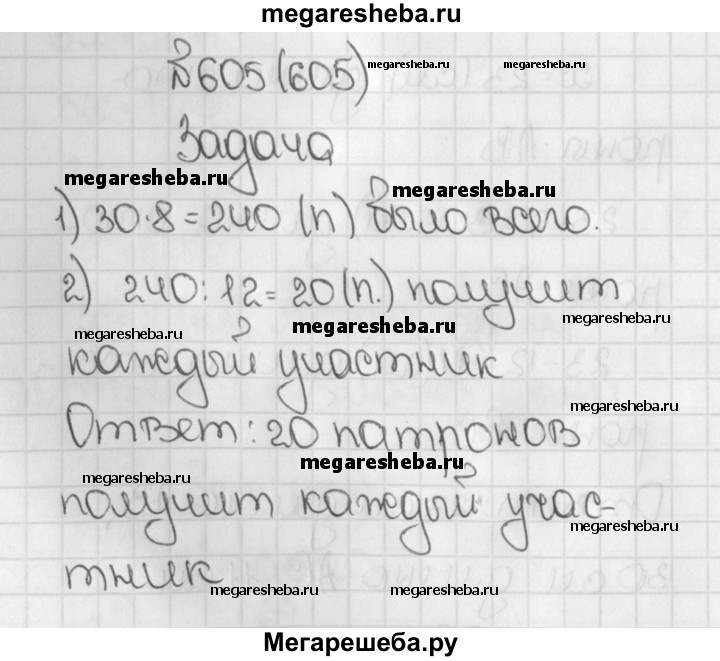 megaresheba.ru
№605(605) megaresheba.ru
megaresheba.ru
Задача
megaresheba.ru
megaresheba.ru
1) 30·8=240 (п) было всего.
2) 240:12=20(п.) получит
megaresheba.ru
megaresheba.ru
megaresheba.ru
каждый участник
megaresheba.ru
Ответ: 20 патронов
megaresheba.ru
megaresheba.ru
получит каждый учас-
megaresheba.ru
тник megaresheba.ru megaresheba.ru
Мегарешеба.ру